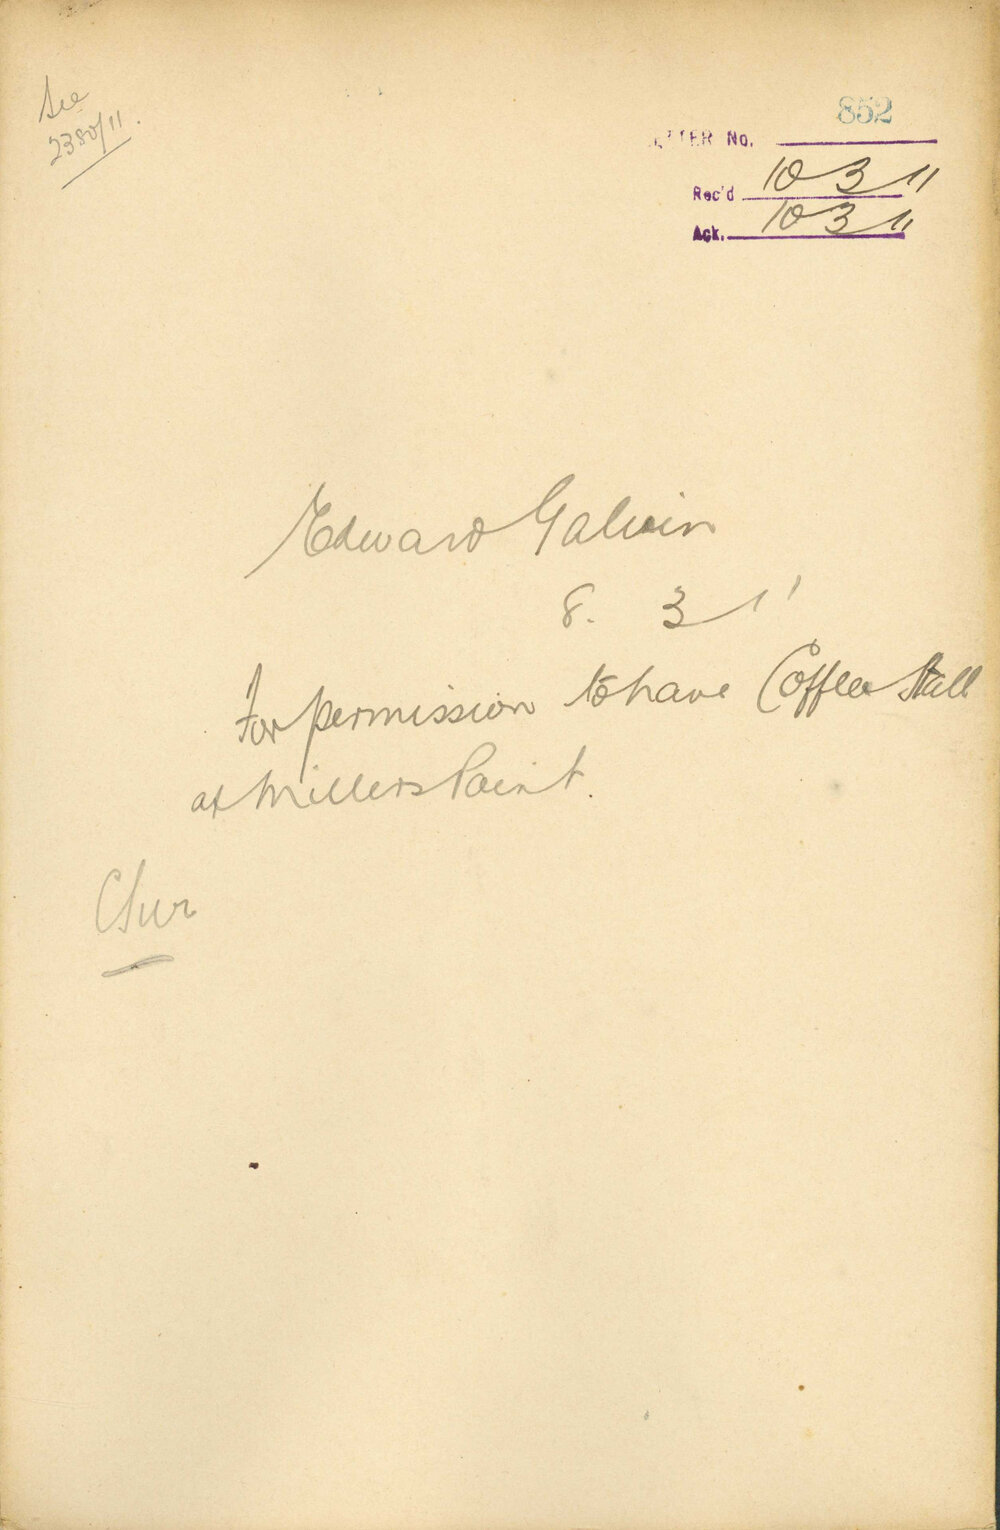 See
2380/11.
852
LETTER No.
Rec'd 10 3 11
Ack. 10 3 11
Edward Galvin
8. 3 11
For permission to have Coffee Stall
at Millers Point.